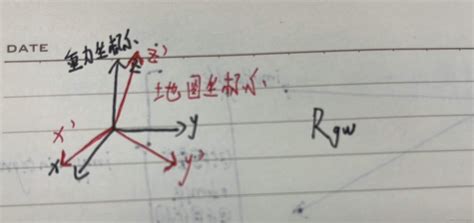 DATE
重力坐标系
z'
z
地图坐标系
x'
y
Rgw
x
y'